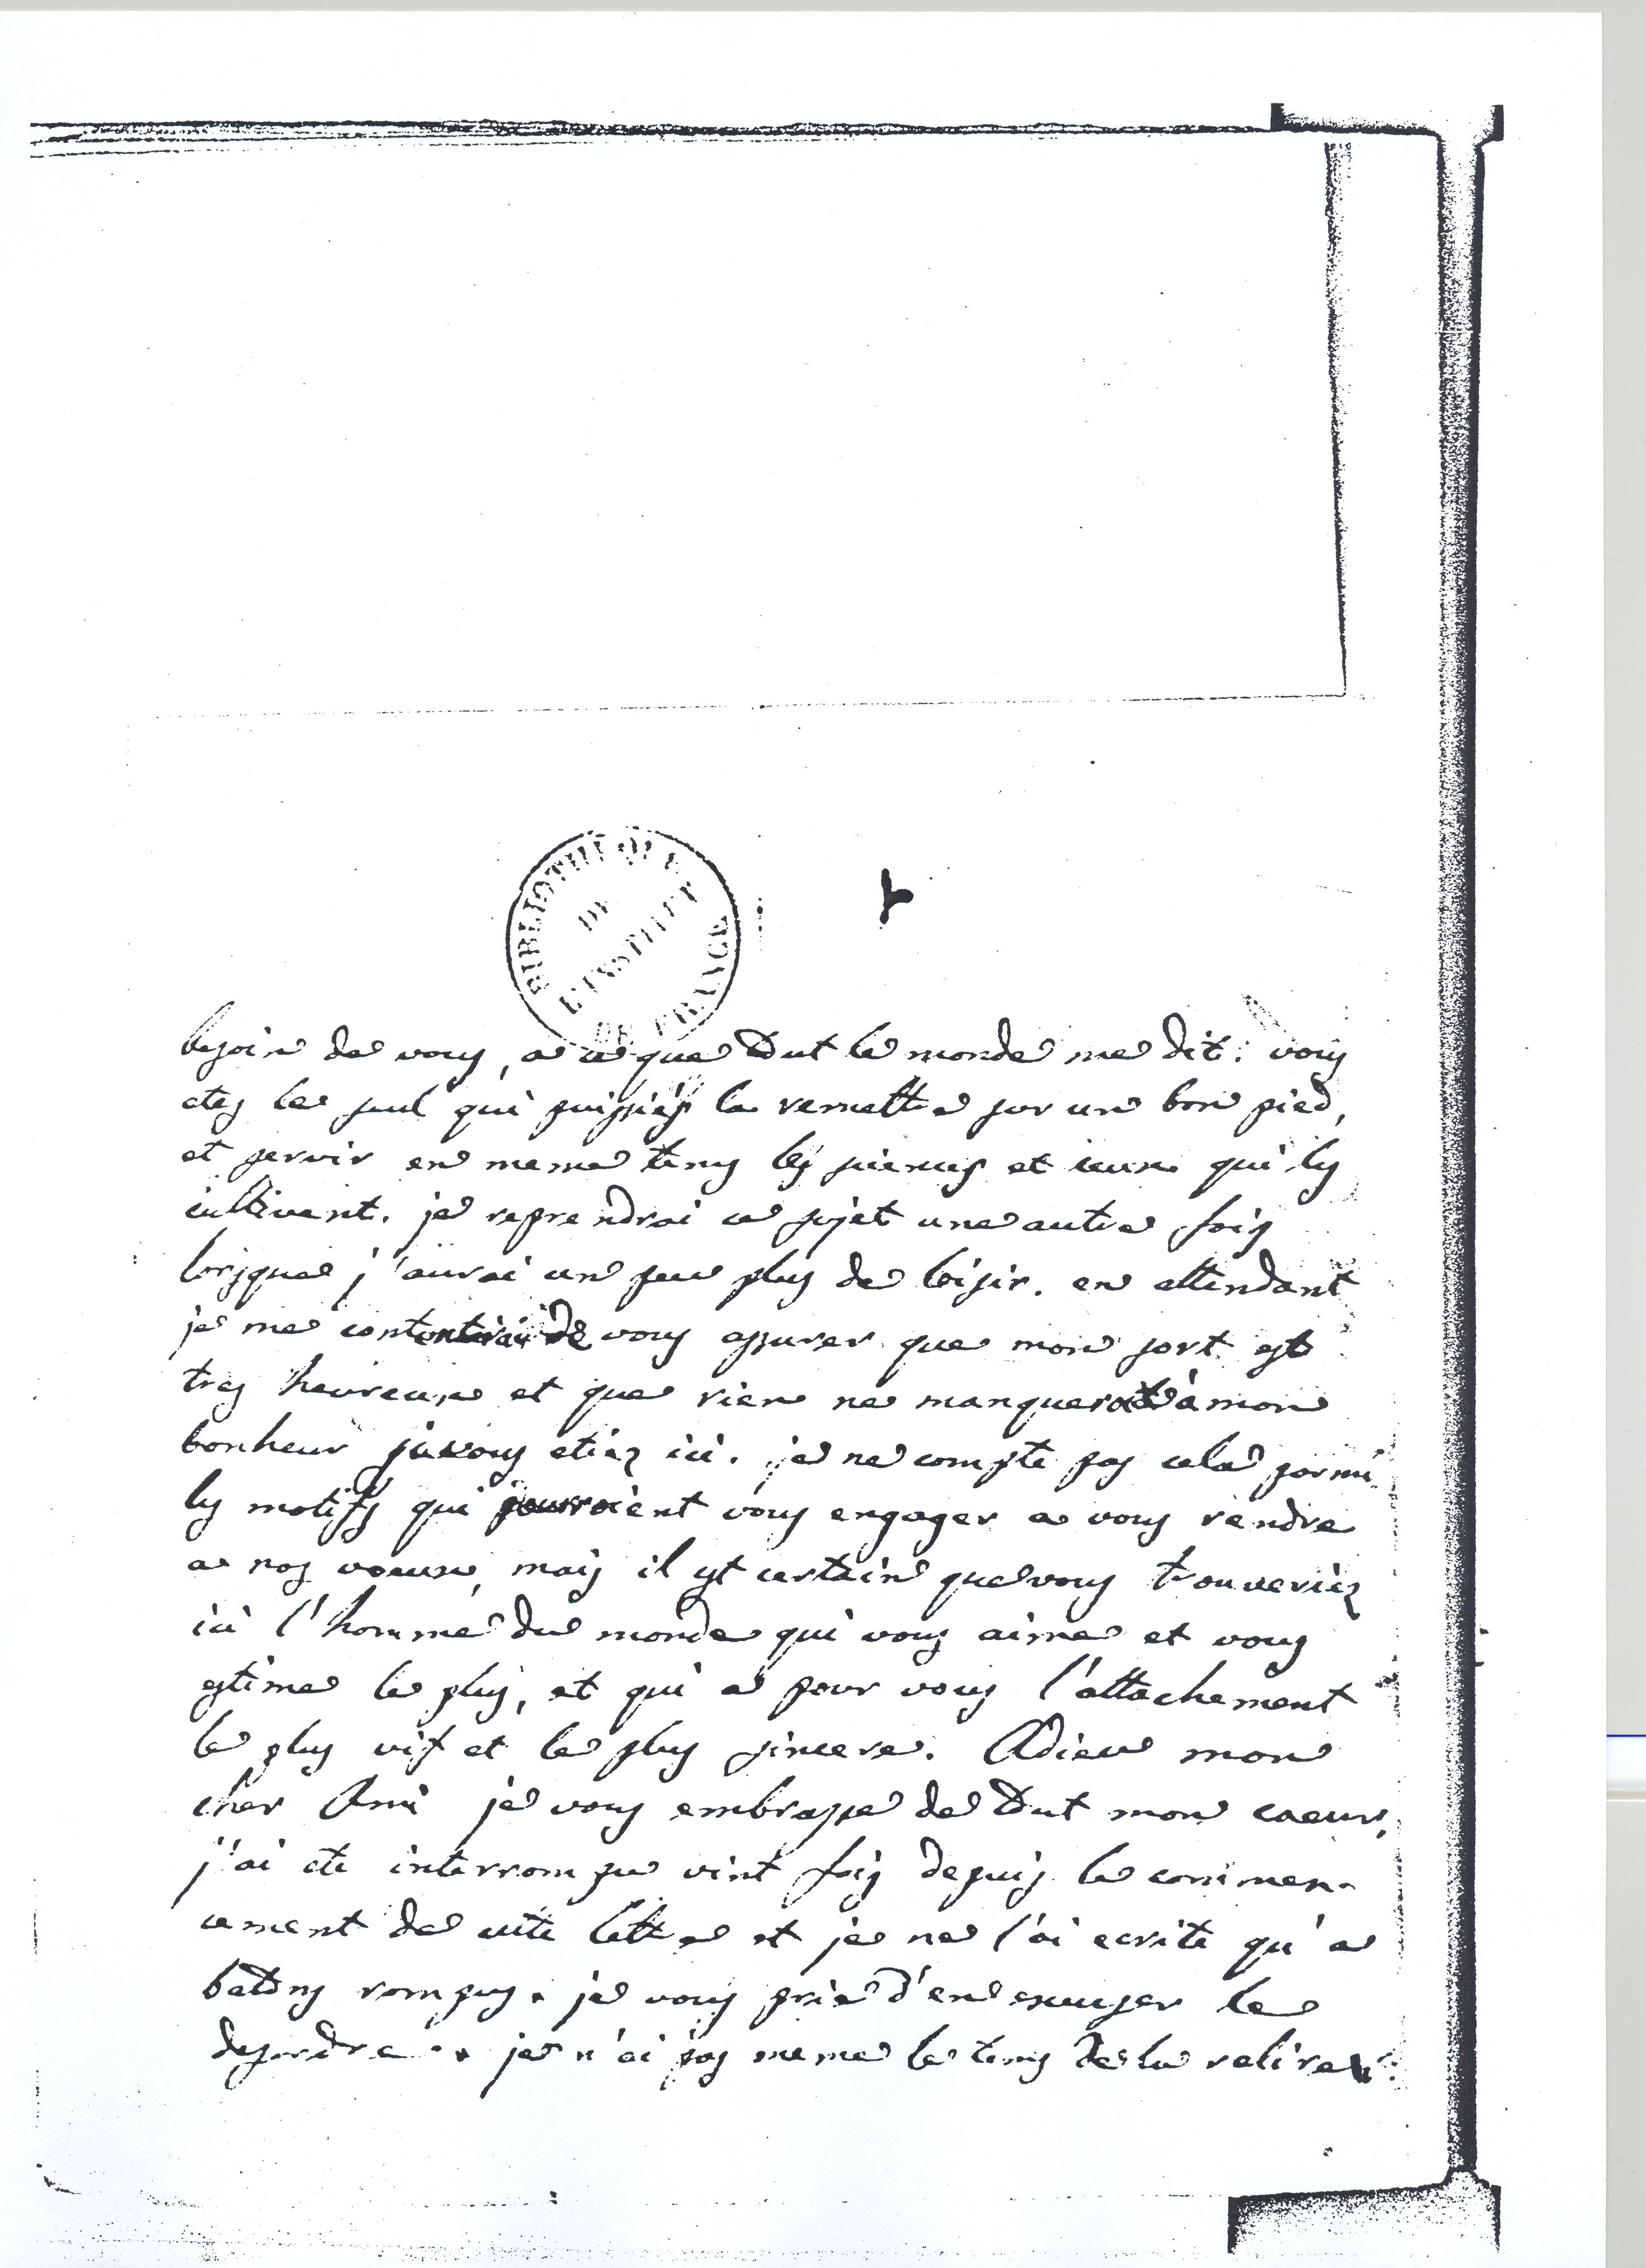 BIBLIOTHEQUE
DE
L'INSTITUT
DE FRANCE
besoin de vous, a ce que tout le monde me dit : vous
etes le seul qui puissiés la remettre sur un bon pied,
et servir en meme tems les sciences et ceux qui les
cultivent. je reprendrai ce sujet une autre fois
lorsque j'aurai un peu plus de loisir. en attendant
je me contenterai de vous assurer que mon sort est
tres heureux et que rien ne manqueroit à mon
bonheur si vous etiez ici. je ne compte pas cela parmi
les motifs qui pourroient vous engager a vous rendre
a nos voeux, mais il est certain que vous trouveriez
ici l'homme du monde qui vous aime et vous
estime le plus, et qui a pour vous l'attachement
le plus vif et le plus sincere. Adieu mon
cher Ami je vous embrasse de tout mon coeur,
j'ai eté interrompu vint fois depuis le commen-
cement de cete lettre et je ne l'ai ecrite qu'a
batons rompus. je vous prie d'en excuser le
desordre. je n'ai pas meme le tems de la relire.